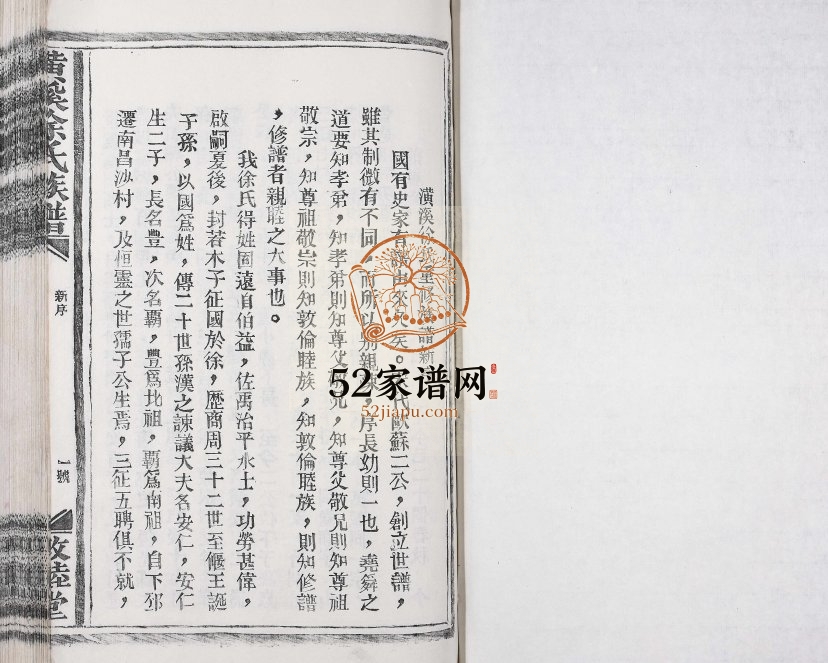 潢溪徐氏重修族譜新
國有史家有譜由來久矣。代歐蘇二公，創立世譜，
雖其制微有不同，而所以別親疎，序長幼則一也，堯舜之
道要知孝弟，知孝弟則知尊父敬兄，知尊父敬兄則知尊祖
敬宗，知尊祖敬宗則知敦倫睦族，知敦倫睦族，則知修譜
，修譜者親睦之大事也。
我徐氏得姓固遠自伯益，佐禹治平水土，功勞甚偉，
啟嗣夏後，封若木子征國於徐，歷商周三十二世至偃王誕
子孫，以國爲姓，傳二十世孫漢之諫議大夫名安仁，安仁
生二子，長名豐，次名霸，豐爲北祖，霸爲南祖，自下邳
遷南昌沙村，及恒靈之世孺子公生焉，三征五聘俱不就，
潢溪徐氏族譜
新序
一號
敦睦堂
52家谱网
52jiapu.com